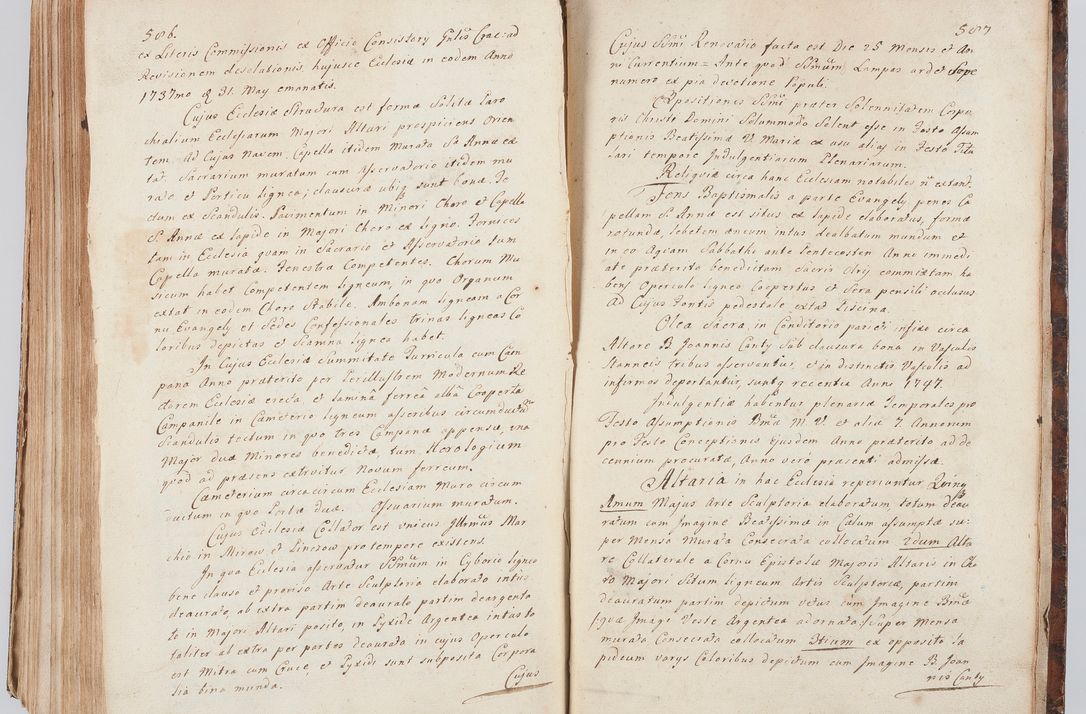 586.
ex Literis Commissionis ex Officio Consistory Gnlis Crac: ad
Revisionem desolationis hujusce Ecclesiæ in eodem Anno
1737mo d. 31. May emanatis.
Cujus Ecclesiæ Structura est formæ Solitæ Paro
chialium Ecclesiarum Majori Altari prospiciens Orien
tem. Ad Cujus Navem Capella itidem Murata Sæ Annæ ex
tat, Sacrarium muratum cum Asservatorio itidem mu
rato et Porticu lignea; clausuræ ubiq sunt bonæ. Te
ctum ex Scandulis. Pavimentum in Minori Choro et Capella
Sæ Annæ ex lapide in Majori Choro ex ligno. Fornices
tam in Ecclesia quam in Sacrario et Asservatorio tum
Capella muratæ. Fenestræ Competentes. Chorum Mu
sicum habet Competentem ligneum, in quo Organum
extat in eodem Choro Stabile. Ambonam ligneam a Cor
nu Evangely et Sedes Confessionales trinas ligneas Co
loribus depictas et Scamna lignea habet.
In Cujus Ecclesiæ Summitate Turricula cum Cam
pana Anno præterito per Perillustrem Modernum Re
ctorem Ecclesiæ erecta et laminâ ferreâ albâ Cooperta
Campanile in Cæmeterio ligneum asseribus circumductum
Scandulis tectum in quo tres Campanæ appensæ, una
Major duæ Minores benedictæ, tum Horologium
quod ad præsens extruitur Novum ferreum.
Cæmeterium circacircum Ecclesiam Muro circum
ductum in quo Portæ duæ. Ossuarium muratum.
Cujus Ecclesiæ Collator est unicus Illrmus Mar
chio in Mirow et Pinczow pro tempore existens.
In qua Ecclesia asservatur SSmum in Cyborio ligneo
bene clauso et proviso Arte Sculptoria elaborato intus
deaurato, ab extra partim deaurate partim deargenta
te in Majori Altari posito, in Pyxide Argentea intus to
taliter ab extra per partes deaurata in cujus Operculo
est Mitra cum Cruce, et Pyxidi sunt subposita Corpora
lia bina munda.
Cujus
587
Cujus SSmi Renovatio facta est Die 25 Mensis et An
ni Currentium = Ante quod SSmum Lampas ardet Sæpe
numero ex pia devotione Populi.
Expositiones SSmi præter Solennitatem Corpo
ris Christi Domini Solummodo Solent esse in Festo Assum
ptionis Beatissimæ V. Mariæ ex usu alias in Festo Titu
lari tempore Indulgentiarum Plenariarum.
Reliquiæ circa hanc Ecclesiam notabiles n extant.
Fons Baptismalis a parte Evangely penes Ca
pellam S. Annæ est situs ex lapide elaboratus, formæ
rotundæ, lebetem æneum intus dealbatum mundum et
in eo Aquam Sabbatho ante Pentecosten Anni immedi
ate præterito benedictam Sacris Olys commixtam ha
bens Operculo ligneo Coopertus et Sera pensili occlusus
Ad Cujus Fontis pedestale extat Piscina.
Olea Sacra, in Conditorio parieti infixo circa
Altare B Joannis Canty Sub clausura bona in Vasculis
Stanneis tribus asservantur, et in distinctis Vasculis ad
infirmos deportantur, suntq recentia Anni 1747.
Indulgentiæ habentur plenariæ Temporales pro
Festo Assumptionis Bmæ M. V. et aliæ 7 Annorum
pro Festo Conceptionis ejusdem Anno præterito ad de
cennium procuratæ, Anno verò præsenti admissæ.
Altaria in hac Ecclesia reperiuntur Quinq
1mum Majus Arte Sculptoria elaboratum, totum deau
ratum cum Imagine Beatissimæ in Cælum assumptæ su-
per Mensa Murata Consecrata collocatum 2dum Alta
re Collaterale a Cornu Epistolæ Majoris Altaris in Cho
ro Majori Situm ligneum Artis Sculptoriæ, partim
deauratum partim depictum vetus cum Imagine Bmæ
/quæ Imago Veste Argentea adornata/ super Mensa
murata, Consecrata collocatum 3tium ex opposito la
pideum varys Coloribus depictum cum Imagine B. Joan
nis Canty